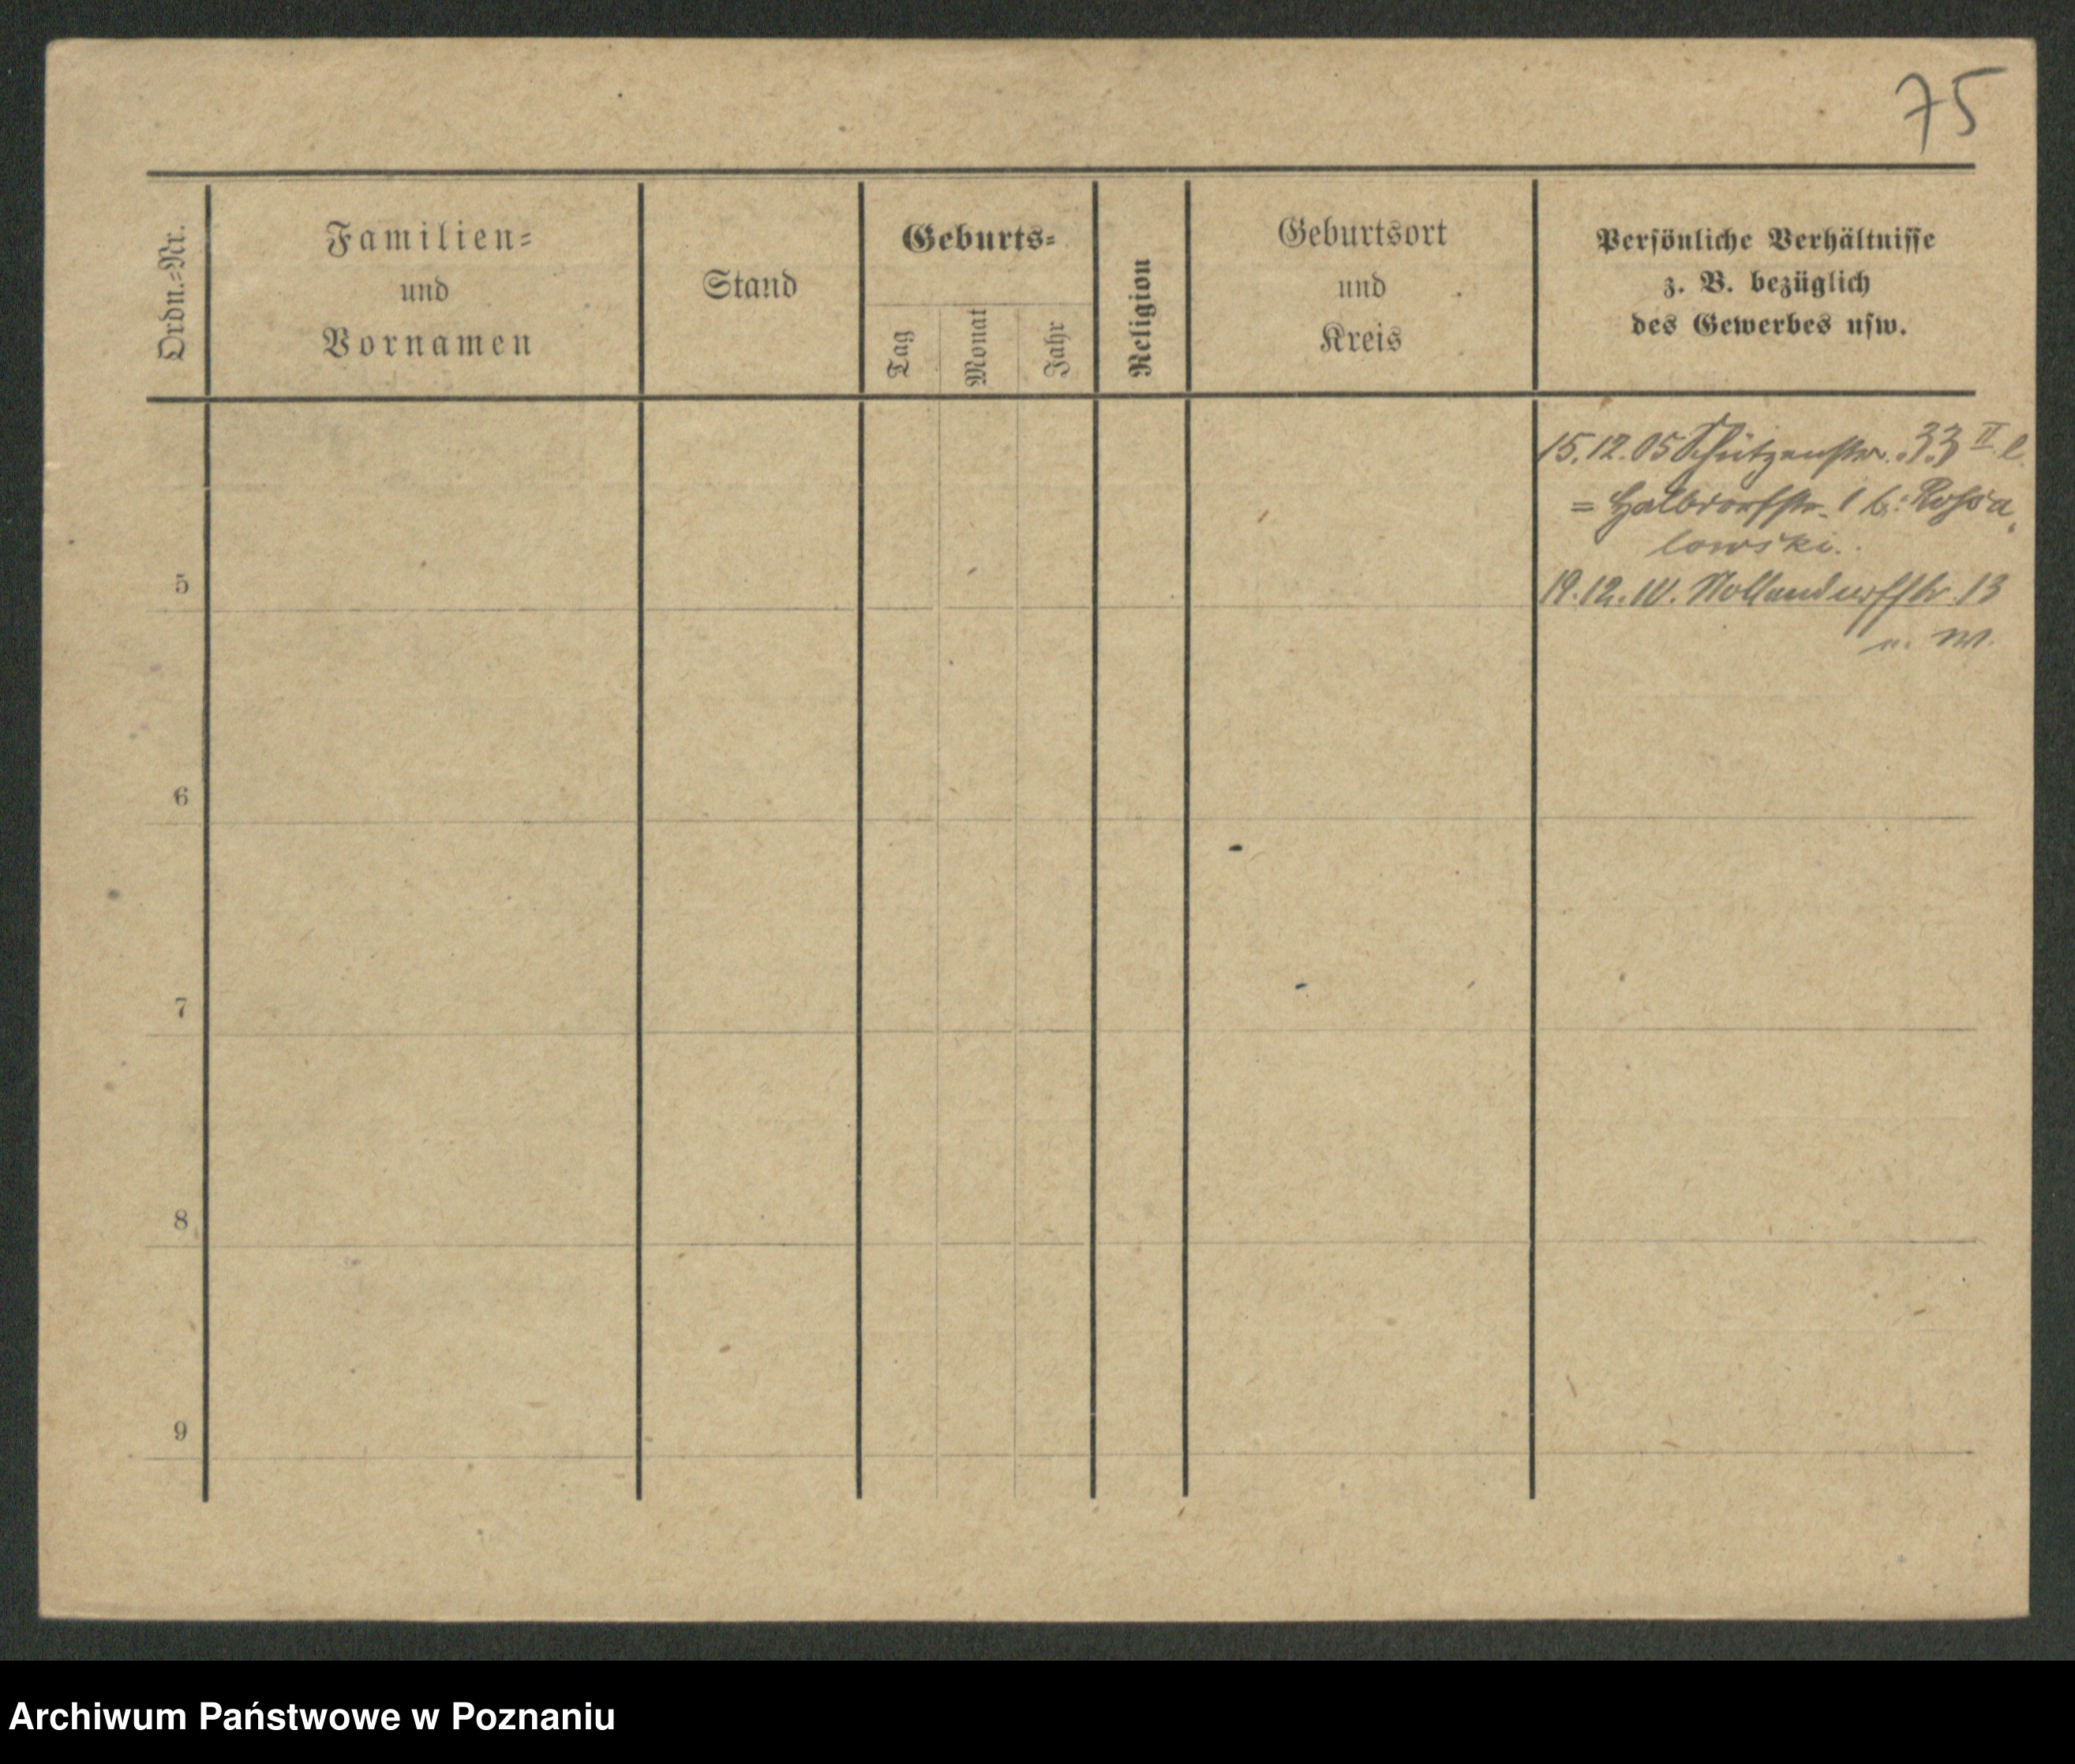 75
Ordn.=Nr.
Familien=
und
Vornamen
Stand
Geburts=
Tag
Monat
Jahr
Religion
Geburtsort
und
Kreis
Persönliche Verhältnisse
z. B. bezüglich
des Gewerbes usw.
15.12.05 Schützenstr. 33 II l.
= Halbdorfstr. 16:
lowski.
5
19.12. Nollendorfstr. 13
6
7
8
9
Archiwum Państwowe w Poznaniu